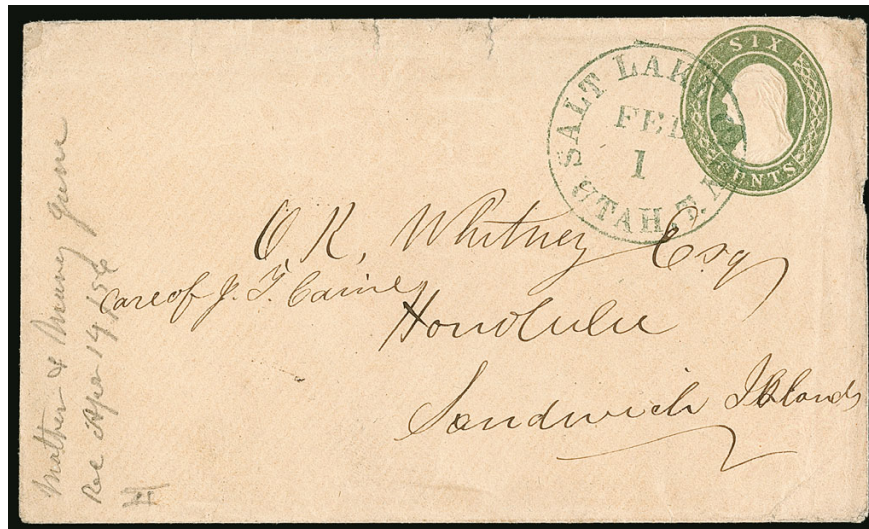 SIX
CENTS
SALT LAKE
FEB
1
UTAH.T.
O. K. Whitney Esq
care of J. T. Caine
Honolulu
Sandwich Islands
Mother &
Rec Apr 14
II